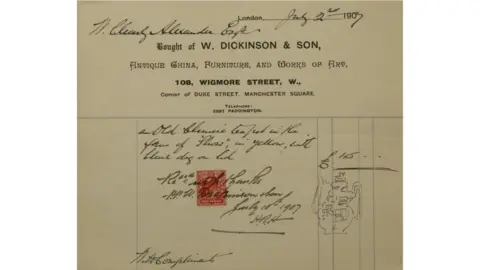 London, July 2nd 1907
W. Cleverly Alexander Esqre
Bought of W. DICKINSON & SON,
ANTIQUE CHINA, FURNITURE, AND WORKS OF ART,
108, WIGMORE STREET, W.,
Corner of DUKE STREET, MANCHESTER SQUARE.
TELEPHONE:
PADDINGTON.
an Old Chinese teapot in the
form of "Shou", in yellow, with
blue dog on lid
£
with thanks
W. Dickinson & Son
July 10th 1907
With Compliments